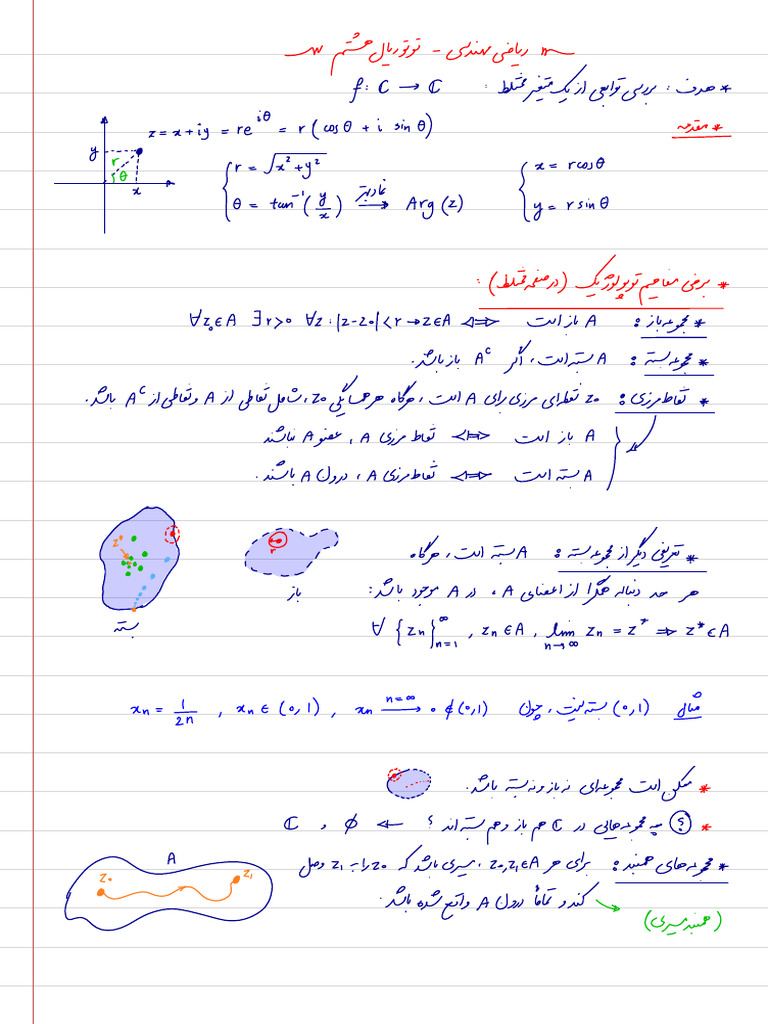 ریاضی مهندسی - توتوریال هشتم
* هدف : بررسی توابعی از یک متغیر مختلط : f: C → C
* مقدمه
z = x + iy = re^{iθ} = r (cosθ + i sinθ)
y
r
θ
x
r = √(x² + y²)
θ = tan⁻¹(y/x) → نمادبهتر Arg(z)
x = r cosθ
y = r sinθ
* برخی مفاهیم توپولوژیک (در صفحه مختلط) :
* مجموعه باز : A باز است ⟺ ∀z₀∈A ∃r>0 ∀z : |z-z₀|<r → z∈A
* مجموعه بسته : A بسته است، اگر Aᶜ باز باشد.
* نقاط مرزی : z₀ نقطه‌ای مرزی برای A است، هرگاه هر همسایگی z₀، شامل نقاطی از A و نقاطی از Aᶜ باشد.
A باز است ⟺ نقاط مرزی A، عضو A نباشند
A بسته است ⟺ نقاط مرزی A، درون A باشند.
* تعریفی دیگر از مجموعه بسته : A بسته است، هرگاه
هر حد دنباله همگرا از اعضای A، در A موجود باشد :
∀ {zn}_{n=1}^{∞} , zn∈A , lim_{n→∞} zn = z* ⇒ z*∈A
z*
بسته
r
باز
مثال (0,1) بسته نیست، چون xn = 1/2n , xn ∈ (0,1) , xn →^{n=∞} 0 ∉ (0,1)
* ممکن است مجموعه‌ای نه باز و نه بسته باشد.
* ؟ چه مجموعه‌هایی در C هم باز و هم بسته اند ؟ ← ∅ و C
* مجموعه‌های همبند : برای هر z₀,z₁∈A، مسیری باشد که z₀ را به z₁ وصل
کند و تماماً درون A واقع شده باشد.
(همبند مسیری)
A
z₀
z₁